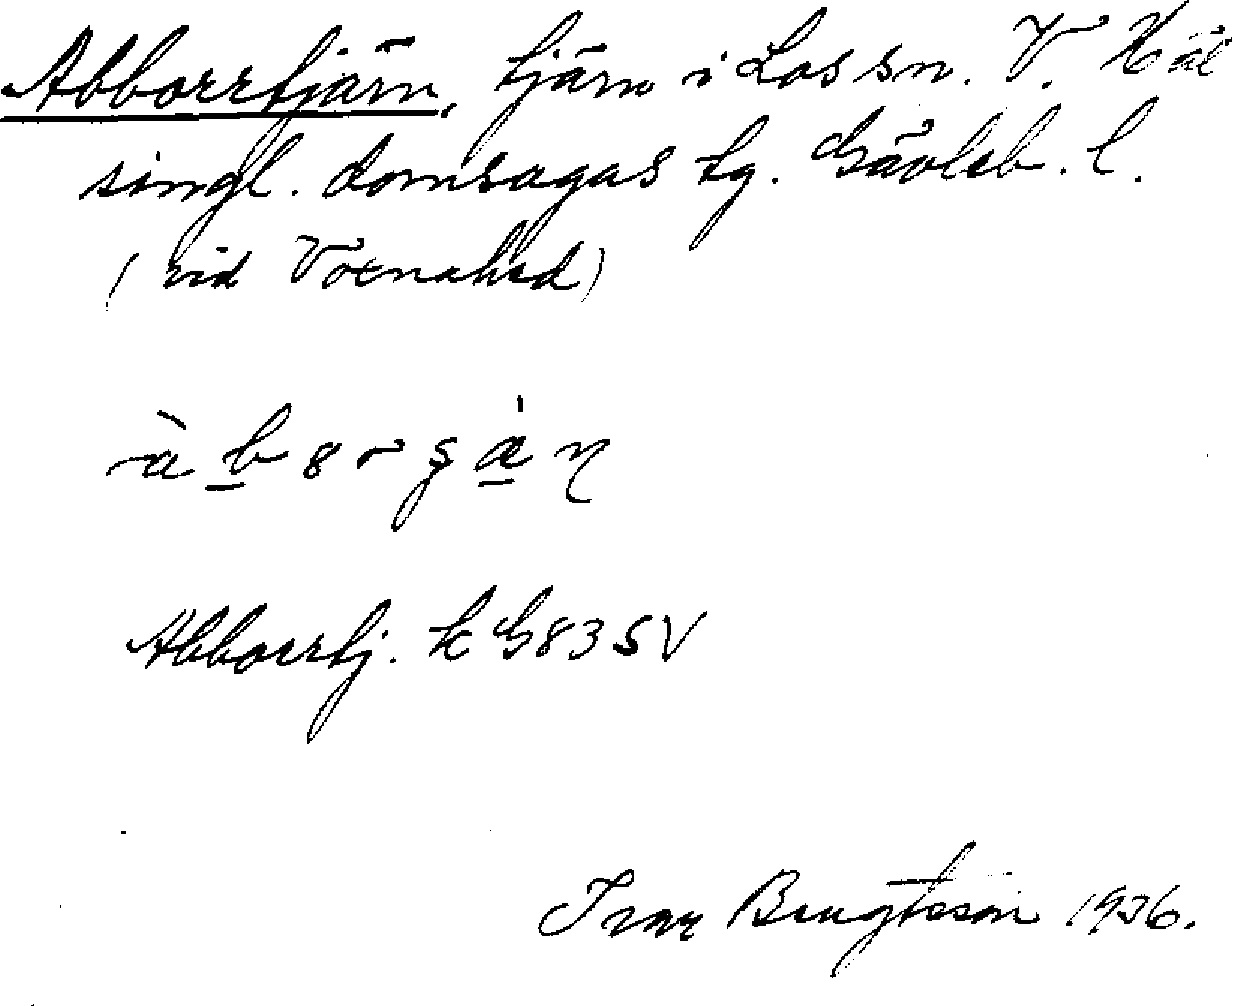 Abborrtjärn, tjärn i Los sn. V. Häl
singl. domsagas tg. Gävleb. l.
(vid Voxnahed)
Abborrtj. k G83SV
Ivar Bengtsson 1936.